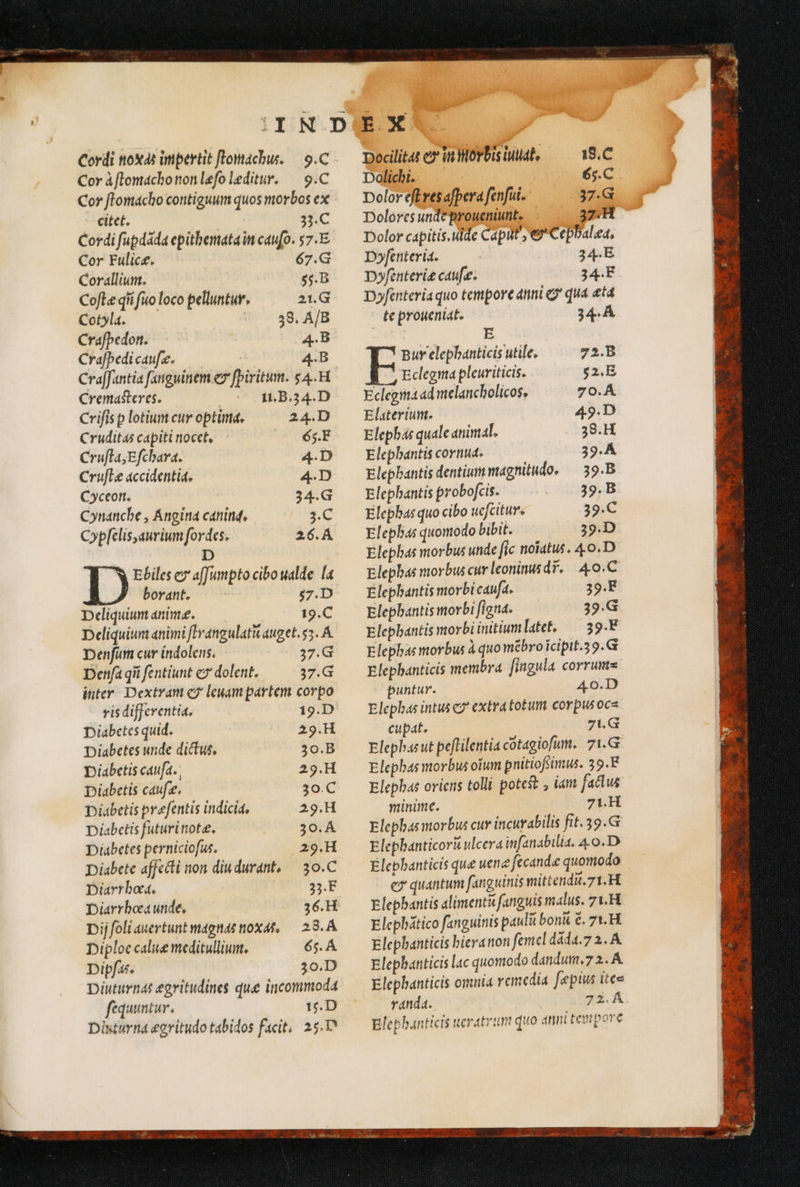 INDEX
Cordi noxas impertit ſtomachus. 9.C
Cor à ſtomacho non læſo læditur. 9.C
Cor ſtomacho contiguum quos morbos ex
citet. 33.C
Cordi ſupdãda epithemata in cauſo. 57.E
Cor Fulicæ. 67.G
Corallium. 55.B
Coſtæ qñ ſuo loco pelluntur. 21.G
Cotyla. 38.A/B
Craſpedon. 4.B
Craſpedi cauſæ. 4.B
Craſſantia ſanguinem & ſpiritum. 54.H
Cremasteres. 11.B.34.D
Criſis p lotium cur optima. 24.D
Cruditas capiti nocet. 65.F
Cruſta, Eſchara. 4.D
Cruſtæ accidentia. 4.D
Cyceon. 34.G
Cynanche, Angina canina. 3.C
Cypſelis, aurium ſordes. 26.A
D
DEbiles & aſſumpto cibo ualde la
borant. 57.D
Deliquium animæ. 19.C
Deliquium animi ſtrangulatũ auget. 53.A
Denſum cur indolens. 37.G
Denſa qñ ſentiunt & dolent. 37.G
inter Dextram & leuam partem corpo
ris differentia. 19.D
Diabetes quid. 29.H
Diabetes unde dictus. 30.B
Diabetis cauſa. 29.H
Diabetis cauſæ. 30.C
Diabetis præſentis indicia. 29.H
Diabetis futuri notæ. 30.A
Diabetes pernicioſus. 29.H
Diabete affecti non diu durant. 30.C
Diarrhœa. 33.F
Diarrhœa unde. 36.H
Dij ſoli auertunt magnas noxas. 28.A
Diploe caluæ meditullium. 65.A
Dipſas. 30.D
Diuturnas ægritudines quæ incommoda
ſequuntur. 15.D
Diuturna ægritudo tabidos facit. 25.D
Docilitas & in morbis iuuat. 18.C
Dolichi. 65.C
Dolor eſt res aſpera ſenſui. 37.G
Dolores unde proueniunt. 37.H
Dolor capitis. uide Caput, & Cephalæa.
Dyſenteria. 34.E
Dyſenteriæ cauſæ. 34.F
Dyſenteria quo tempore anni & qua æta
te proueniat. 34.A
E
EBur elephanticis utile. 72.B
Eclegma pleuriticis. 52.E
Eclegma ad melancholicos. 70.A
Elaterium. 49.D
Elephas quale animal. 38.H
Elephantis cornua. 39.A
Elephantis dentium magnitudo. 39.B
Elephantis proboſcis. 39.B
Elephas quo cibo ueſcitur. 39.C
Elephas quomodo bibit. 39.D
Elephas morbus unde ſic notatus. 40.D
Elephas morbus cur leoninus dr̃. 40.C
Elephantis morbi cauſa. 39.F
Elephantis morbi ſigna. 39.G
Elephantis morbi initium latet. 39.F
Elephas morbus à quo mẽbro ĩcipit. 39.G
Elephanticis membra ſingula corrum=
puntur. 40.D
Elephas intus & extra totum corpus oc=
cupat. 71.G
Elephas ut peſtilentia cõtagioſum. 71.G
Elephas morbus oĩum pnitioſsimus. 39.F
Elephas oriens tolli potest, iam factus
minime. 71.H
Elephas morbus cur incurabilis ſit. 39.G
Elephanticorũ ulcera inſanabilia. 40.D
Elephanticis quæ uenæ ſecandæ quomodo
& quantum ſanguinis mittendũ. 71.H
Elephantis alimentũ ſanguis malus. 71.H
Elephãtico ſanguinis paulũ bonũ ẽ. 71.H
Elephanticis hiera non ſemel dãda. 72.A
Elephanticis lac quomodo dandum. 72.A
Elephanticis omnia remedia ſæpius ite=
randa. 72.A
Elephanticis ueratrum quo anni tempore